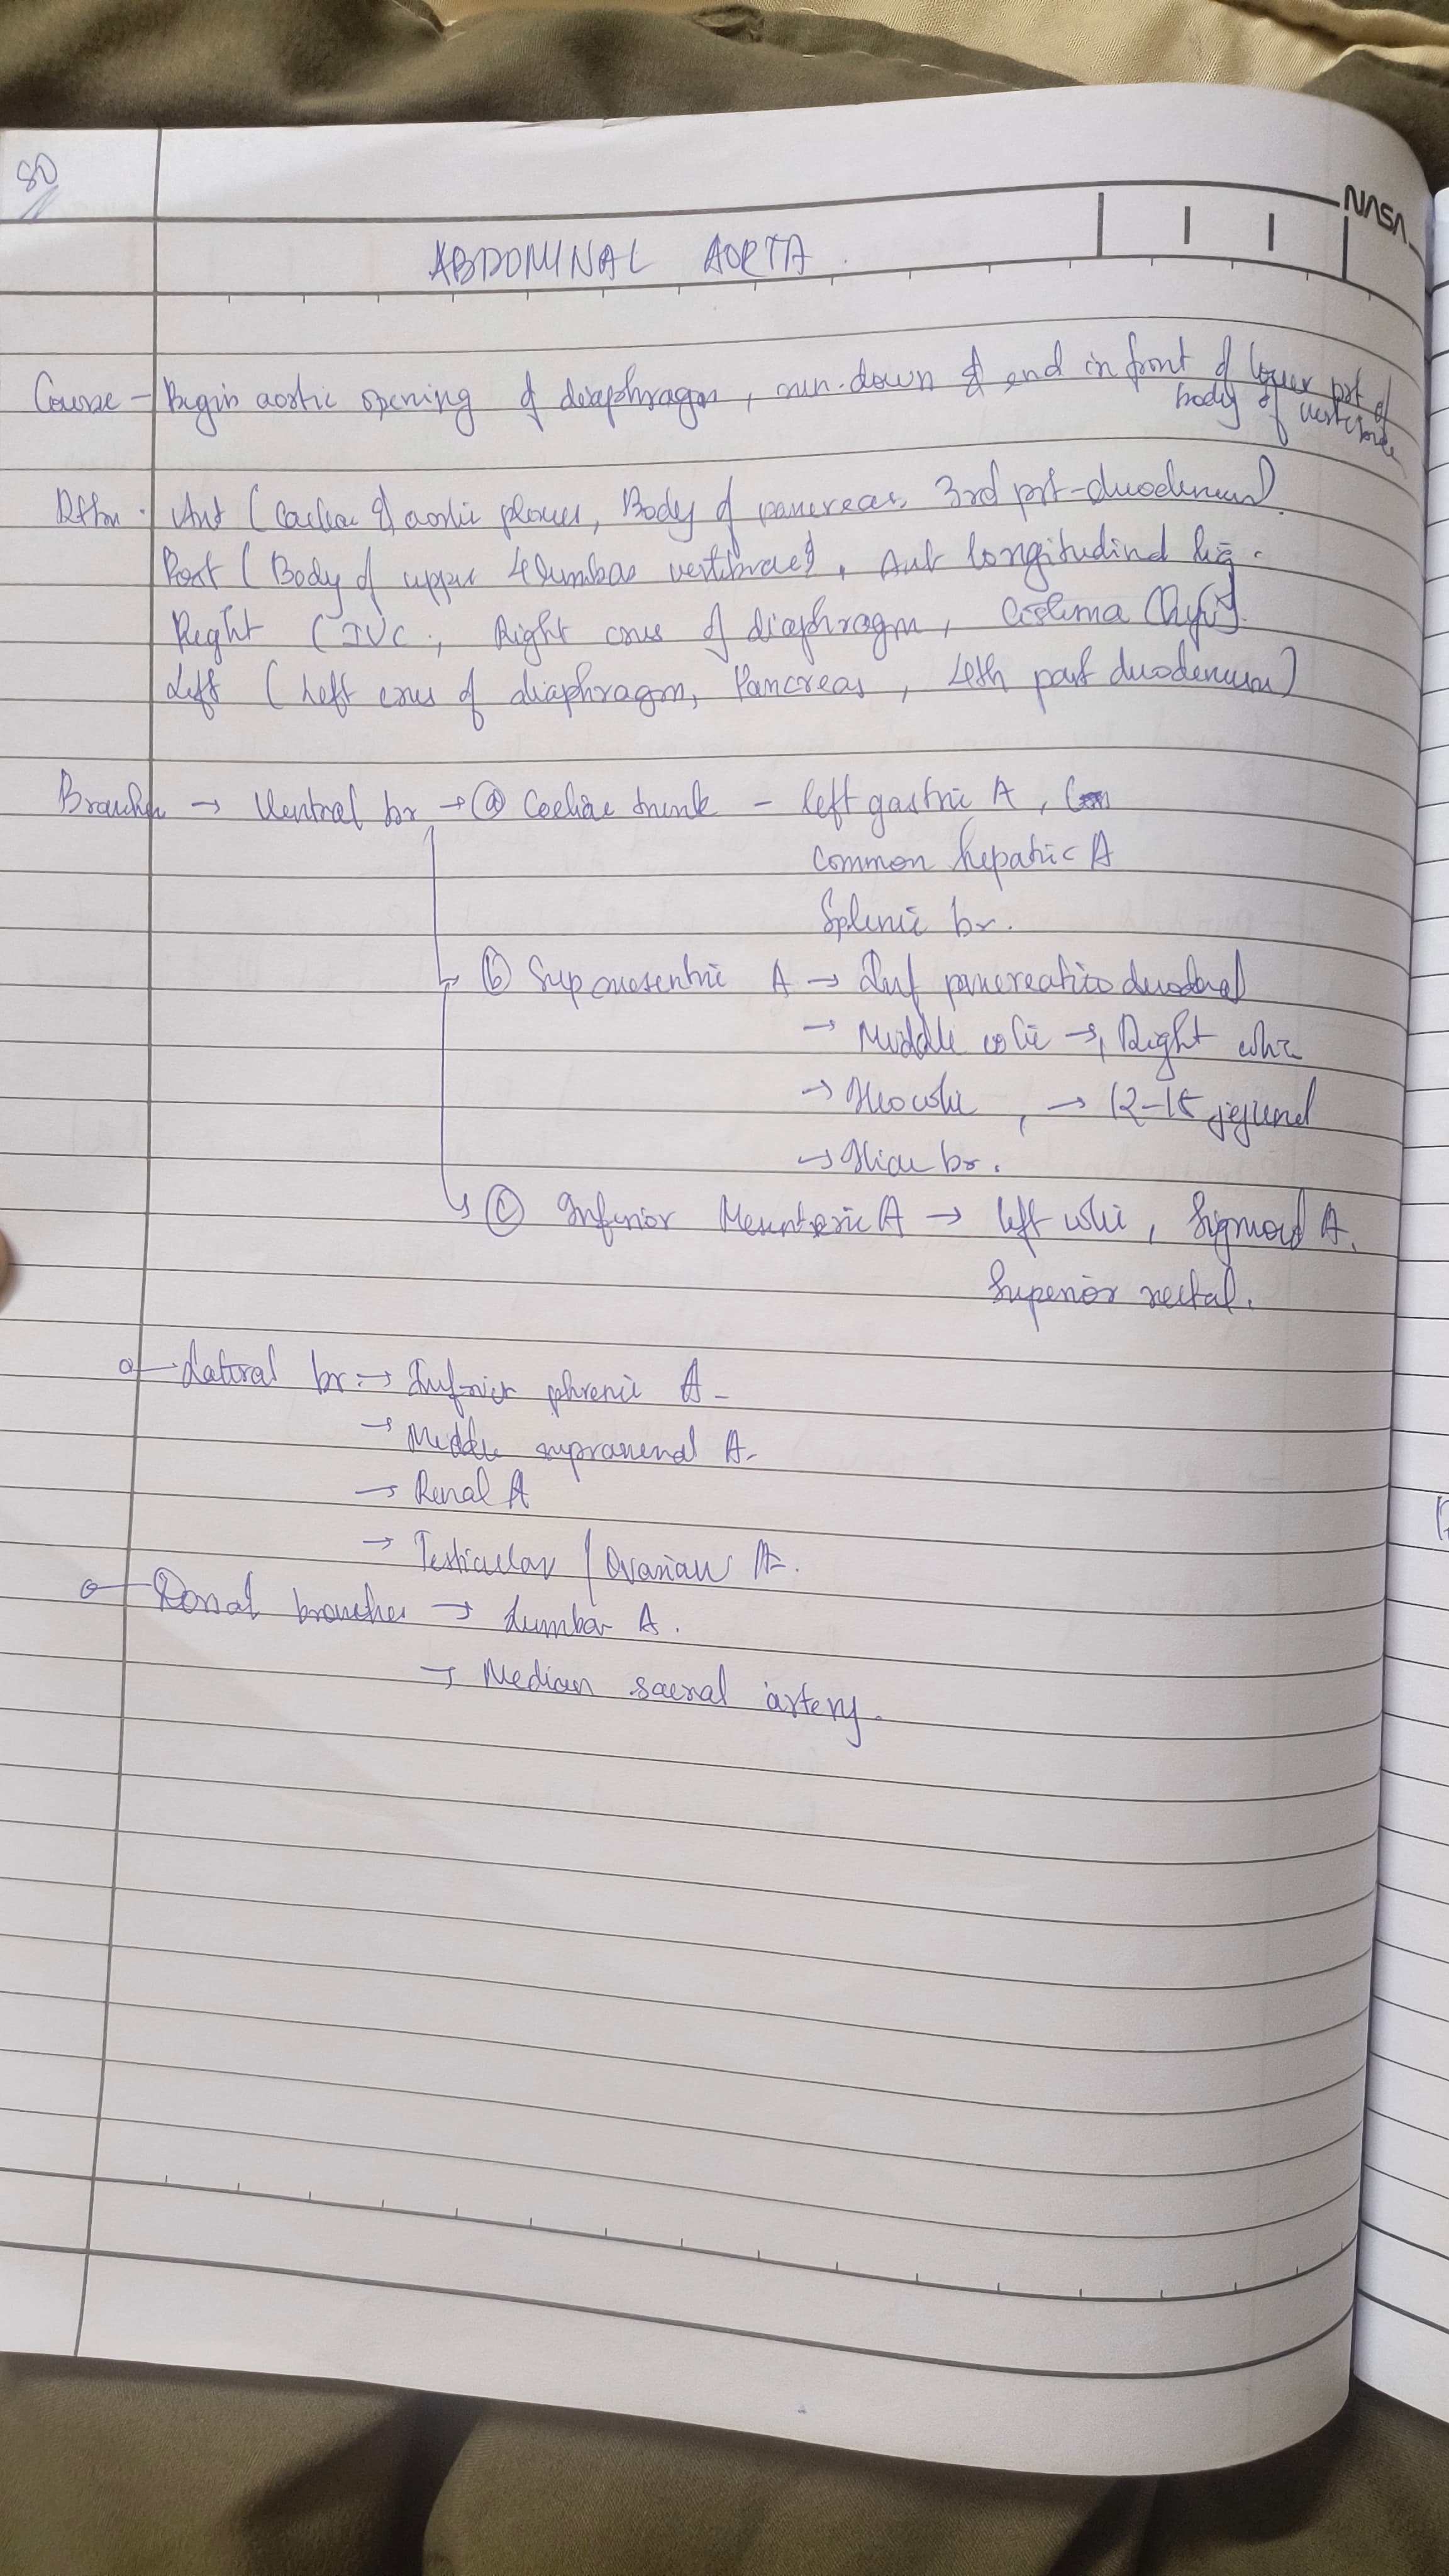 80
NASA
ABDOMINAL AORTA.
Course - Begin aortic opening of diaphragm, run down & end in front of lower prt of
body of vertebrae
Ant (Coeliac & aortic plexus, Body of pancreas, 3rd prt-duodenum).
Post (Body of upper 4 lumbar vertibrae), Ant longitudinal lig.
Right (IVC, Right crus of diaphragm, Cisterna Chyli).
Left (Left crus of diaphragm, Pancreas, 4th part duodenum)
Branches → Ventral br → (a) Coeliac trunk - left gastric A,
Common hepatic A
Splenic br.
(b) Sup mesentric A → Inf pancreatico duodenal
→ Middle colic →, Right colic
→ Ileocolic, → 12-15 jejunal
→ Iliac br.
(c) Inferior Mesenteric A → left colic, Sigmoid A.
Superior rectal.
Lateral br. → Inferior phrenic A -
→ Middle suprarenal A -
→ Renal A
→ Testicular / Ovarian A.
Dorsal branches → Lumbar A.
→ Median sacral artery.